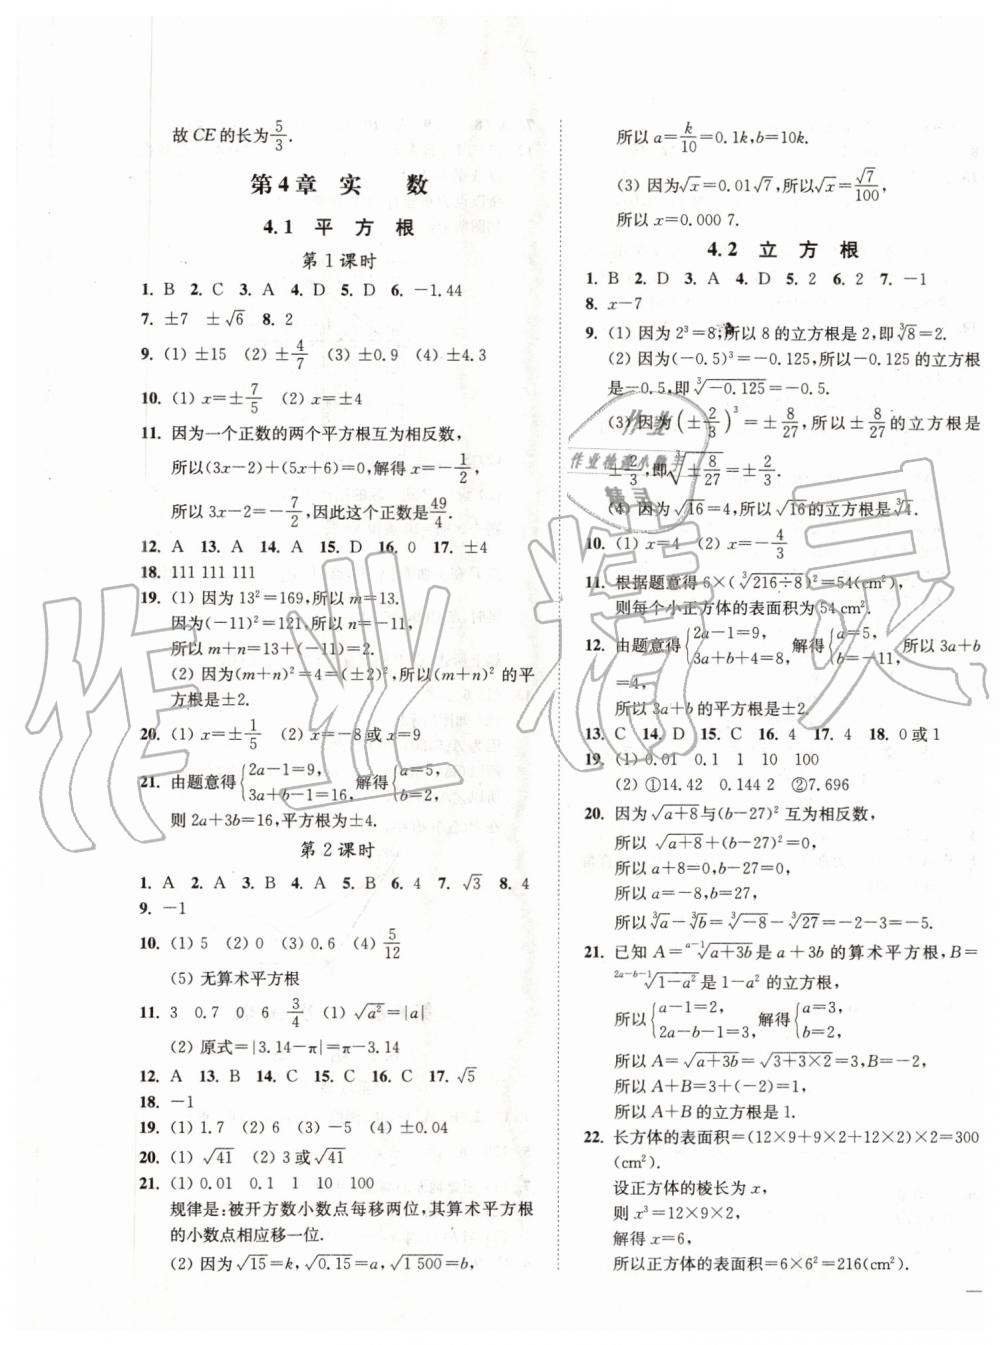 故 CE 的长为 5/3.
第 4 章 实 数
4.1 平 方 根
第 1 课时
1. B 2. C 3. A 4. D 5. D 6. −1.44
7. ±7 ±√6 8. 2
9. (1) ±15 (2) ±4/7 (3) ±0.9 (4) ±4.3
10. (1) x=±7/5 (2) x=±4
11. 因为一个正数的两个平方根互为相反数,
所以(3x−2)+(5x+6)=0,解得 x=−1/2,
所以 3x−2=−7/2,因此这个正数是49/4.
12. A 13. A 14. A 15. D 16. 0 17. ±4
18. 111 111 111
19. (1) 因为 13²=169,所以 m=13.
因为(−11)²=121,所以 n=−11,
所以 m+n=13+(−11)=2.
(2) 因为(m+n)²=4=(±2)²,所以(m+n)² 的平
方根是±2.
20. (1) x=±1/5 (2) x=−8 或 x=9
21. 由题意得{2a−1=9, 3a+b−1=16, 解得{a=5, b=2,
则 2a+3b=16,平方根为±4.
第 2 课时
1. A 2. A 3. A 4. B 5. B 6. 4 7. √3 8. 4
9. −1
10. (1) 5 (2) 0 (3) 0.6 (4) 5/12
(5) 无算术平方根
11. 3 0.7 0 6 3/4 (1) √a²=|a|
(2) 原式=|3.14−π|=π−3.14
12. A 13. B 14. C 15. C 16. C 17. √5
18. −1
19. (1) 1.7 (2) 6 (3) −5 (4) ±0.04
20. (1) √41 (2) 3 或√41
21. (1) 0.01 0.1 1 10 100
规律是:被开方数小数点每移两位,其算术平方根
的小数点相应移一位.
(2) 因为√15=k,√0.15=a,√1 500=b,
所以 a=k/10=0.1k,b=10k.
(3) 因为√x=0.01√7,所以√x=√7/100,
所以 x=0.000 7.
4.2 立 方 根
1. B 2. D 3. A 4. D 5. 2 6. 2 7. −1
8. x−7
9. (1) 因为 2³=8,所以 8 的立方根是 2,即∛8=2.
(2) 因为(−0.5)³=−0.125,所以−0.125 的立方根
是−0.5,即∛−0.125=−0.5.
(3) 因为(±2/3)³=±8/27,所以±8/27的立方根是
±2/3,即∛±8/27=±2/3.
(4) 因为√16=4,所以√16的立方根是∛4.
10. (1) x=4 (2) x=−4/3
11. 根据题意得 6×(∛216÷8)²=54(cm²),
则每个小正方体的表面积为 54 cm².
12. 由题意得{2a−1=9, 3a+b+4=8, 解得{a=5, b=−11, 所以 3a+b
=4,
所以 3a+b 的平方根是±2.
13. C 14. D 15. C 16. 4 17. 4 18. 0 或 1
19. (1) 0.01 0.1 1 10 100
(2) ①14.42 0.144 2 ②7.696
20. 因为 √a+8与(b−27)² 互为相反数,
所以 √a+8+(b−27)²=0,
所以 a+8=0,b−27=0,
所以 a=−8,b=27,
所以∛a−∛b=∛−8−∛27=−2−3=−5.
21. 已知 A=ᵃ⁻¹√a+3b是 a+3b 的算术平方根,B=
²ᵃ⁻ᵇ⁻¹√1−a² 是 1−a² 的立方根,
所以{a−1=2, 2a−b−1=3, 解得{a=3, b=2,
所以 A=√a+3b=√3+3×2=3,B=−2,
所以 A+B=3+(−2)=1,
所以 A+B 的立方根是 1.
22. 长方体的表面积=(12×9+9×2+12×2)×2=300
(cm²).
设正方体的棱长为 x,
则 x³=12×9×2,
解得 x=6,
所以正方体的表面积=6×6²=216(cm²).
作业精灵
作业
作业检查小助手
精灵